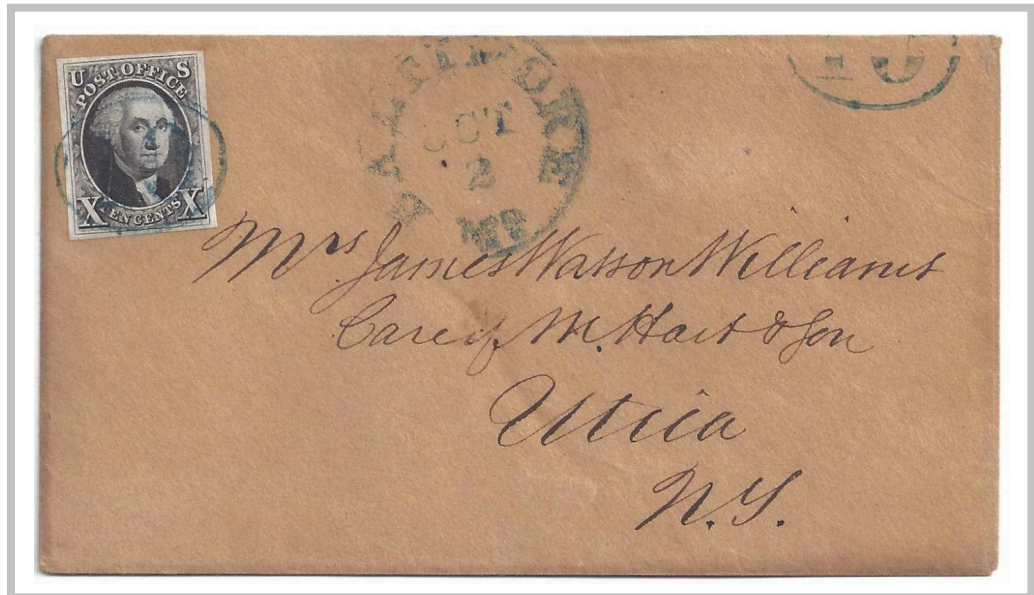 U S
POST OFFICE
X TEN CENTS X
BALTIMORE
OCT
2
Md
10
Mrs James Watson Williams
Care of M. Hart & Son
Utica
N.Y.